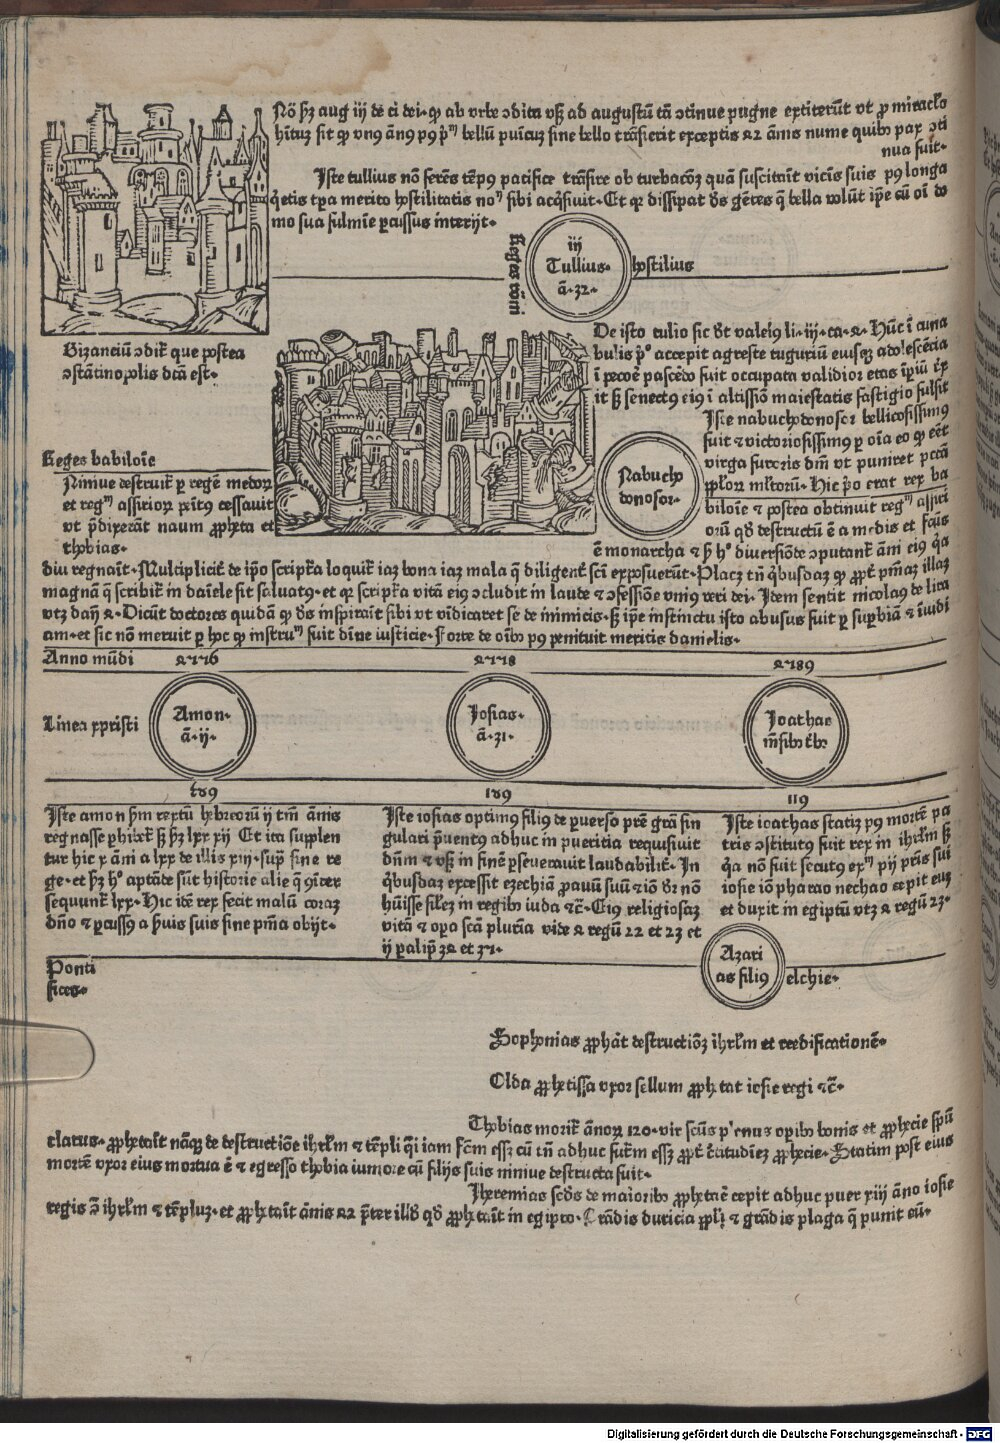 Nō ẜꝫ aug iij de ci dei· ꝙ ab vrbe ꝯdita vſꝫ ad auguſtū tā ↄtinue pugne extiterūt vt ꝓ miraclo
hītuꝫ ſit ꝙ vn9 ān9 p9 bellū punicuꝫ ſine bello trāſierit exceptis 42 ānis nume quibꝰ pax ↄti
nua fuit·
Iſte tullius nō ferēs tēp9 pacifice trāſire ob turbacōꝫ quā ſuſcitaīt vicīus ſuis p9 longa
q̇etis tꝑa merito hoſtilitatis ſibi acq̇ſiuit· Et qꝛ diſſipat dꝰs gētes q̄ bella volūt ip̄e cū oī do
mo ſua fulmīe ꝑcuſſus interijt·
Reges romi
iij
Tullius·
ā·32·
hoſtilius
Bizanciū ↄdiť que poſtea
ↄſtātinoꝓolis dc̄ā eſt·
De iſto tulio ſic dꝰt valeri9 li· iij· ca· 4· Hūc ī cuna
bulis accepit agreſte tuguriū eiuſqꝫ adoleſcēcia
ī pecoē paſcēdo fuit occupata validior etas īꝑiū
it ſꝫ ſenect9 ei9 ī altiſſiō maieſtatis faſtigio fulſit
Iſte nabuchodonoſor bellicoſiſſim9
fuit ⁊ victorioſiſſim9 ꝑ oīa eo ꝙ eēt
virga furoris dn̄i vt puniret pctā
ꝓꝑlorꝝ mĺtorū· Hic erat rex ba
Nabucho
donoſor·
Reges babiloīe
Niniue deſtruiť ꝑ regē medoꝝ
et reg aſſirioꝝ ceſſauit
vt p̄dixerāt naum ꝓpheta et
thobias·
biloīe ⁊ poſtea obtinuit reg aſſiri
orū qd̄ deſtructū ē a medis et
ē monarcha ⁊ diuerſiōde ↄputant̄ āni ei9
diu regnaīt· Multiplicit̄ de ip̄o ſcript̄a loquit̄ iaꝫ bona iaꝫ mala q̄ diligent̄ ſcī expoſuerūt· Placꝫ tn̄ q̇buſdaꝫ ꝙ illaꝫ
magnā q̄ ſcribit̄ in daīele fit ſaluat9· et qꝛ ſcript̄a vitā ei9 ↄcludit in laude ⁊ ↄfeſſiōe vni9 veri dei· Idem ſentit nicola9 de lira
vtꝫ dan̄ 4· Dicūt doctores quidā ꝙ dꝰs inſpiraīt ſibi vt vīdicaret ſe de īnimicis· ſꝫ ip̄e inſtinctu iſto abuſus fuit ꝑ ſuꝑbiā ⁊ īuidi
am· et ſic nō meruit ꝑ hoc ꝙ inſtru fuit diīne iuſticie· Forte de oībꝰ p9 penituit meritis danielis·
Anno mūdi 4776 4778 4789
Linea xpriſti
Amon·
ā·ij·
Ioſias·
ā·31·
Ioathas
m̄ſibꝰ tribꝰ
189 119
Iſte amon ẜm textū hebreorū ij tm̄ ānis
regnaſſe ꝑhibet̄ ſꝫ ẜꝫ lxx xij Et ita ſupplen
tur hic x āni a lxx de illis xiij· ſup ſine re
ge· et ẜꝫ hꝰ aptāde ſūt hiſtorie alie q̄ ↄīter
ſequunt̄ lxx· Hic itē rex fecit malū coraꝫ
dn̄o ⁊ ꝑcuſſ9 a ẜuis ſuis ſine pn̄ia obijt·
Iſte ioſias optim9 fili9 de ꝑuerſo prē grā ſin
gulari p̄uent9 adhuc in puericia requiſiuit
dn̄m ⁊ vſꝫ in finē ꝑſeuerauit laudabilit̄· In
q̇buſdaꝫ exceſſit ezechiā ꝓauū ſuū ⁊ iō dꝛ nō
hūiſſe ſiĺeꝫ in regibꝰ iuda ⁊c̄· Ei9 religioſaꝫ
vitā ⁊ oꝑa ſcā plurīa vide 4 regū 22 et 23 et
ij paliꝑ 34 et 35·
Iſte ioathas ſtatiꝫ p9 mortē pa
tris ↄſtitut9 fuit rex in ihrĺm ſꝫ
q̇a nō fuit ſecut9 pij prīs ſui
ioſie iō pharao nechao cepit euꝫ
et duxit in egiptū vtꝫ 4 regū 23·
Ponti
fices·
Azari
as fili9
elchie·
Sophonias ꝓphāt deſtructiōꝫ ihrĺm et reedificationē·
Olda ꝓphetiſſa vxor ſellum ꝓphetat ioſie regi ⁊c̄·
Thobias morit̄ ānoꝝ 120· vir ſcūs plenus oꝑibꝰ bonis et ꝓphecie ſpū
clarus· ꝓphetaīt nāqꝫ de deſtructiōe ihrĺm ⁊ tēpli q̄ſi iam fc̄m eſſꝫ cū tn̄ adhuc fut̄m eſſꝫ ꝓpt̄ c̄titudieꝫ ꝓphecie· Statim poſt eius
mortē vxor eius mortua ē ⁊ egreſſo thobia iuniore cū filijs ſuis niniue deſtructa fuit·
Iheremias ſcd̄s de maioribꝰ ꝓphetaē cepit adhuc puer xiij āno ioſie
regis ↄ̄ ihrĺm ⁊ tēpluꝫ· et ꝓphetaīt ānis 42 p̄ter illd̄ qd̄ ꝓphetaīt in egipto· Grādis duricia ꝓꝑli ⁊ grādis plaga q̄ punit eū·
Digitalisierung gefördert durch die Deutsche Forschungsgemeinschaft - DFG